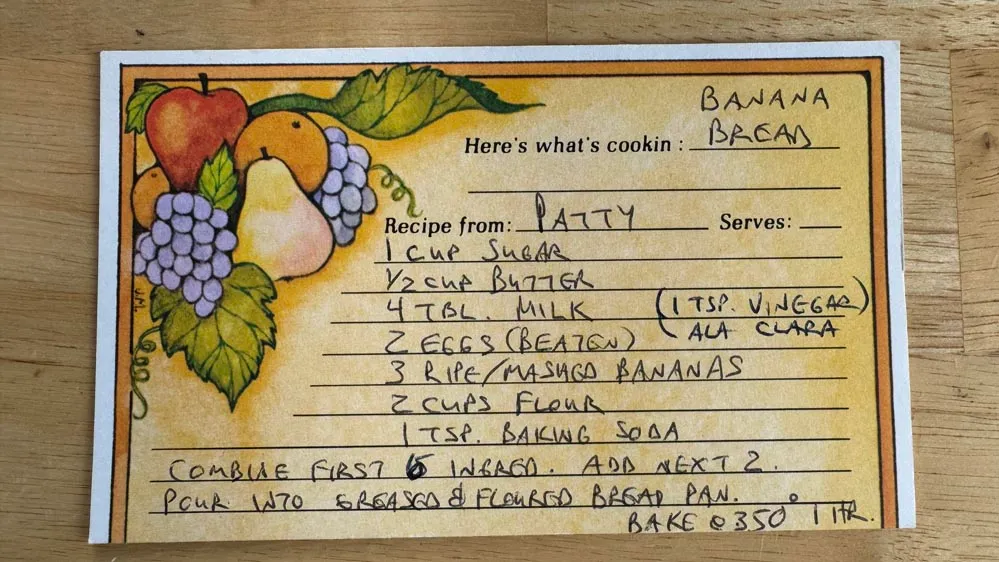 BANANA
Here's what's cookin: BREAD
Recipe from: PATTY Serves:
1 CUP SUGAR
1/2 CUP BUTTER
4 TBL. MILK (1 TSP. VINEGAR)
ALA CLARA
2 EGGS (BEATEN)
3 RIPE/MASHED BANANAS
2 CUPS FLOUR
1 TSP. BAKING SODA
COMBINE FIRST 5 INGRED. ADD NEXT 2.
POUR INTO GREASED & FLOURED BREAD PAN.
BAKE @ 350° 1 HR.